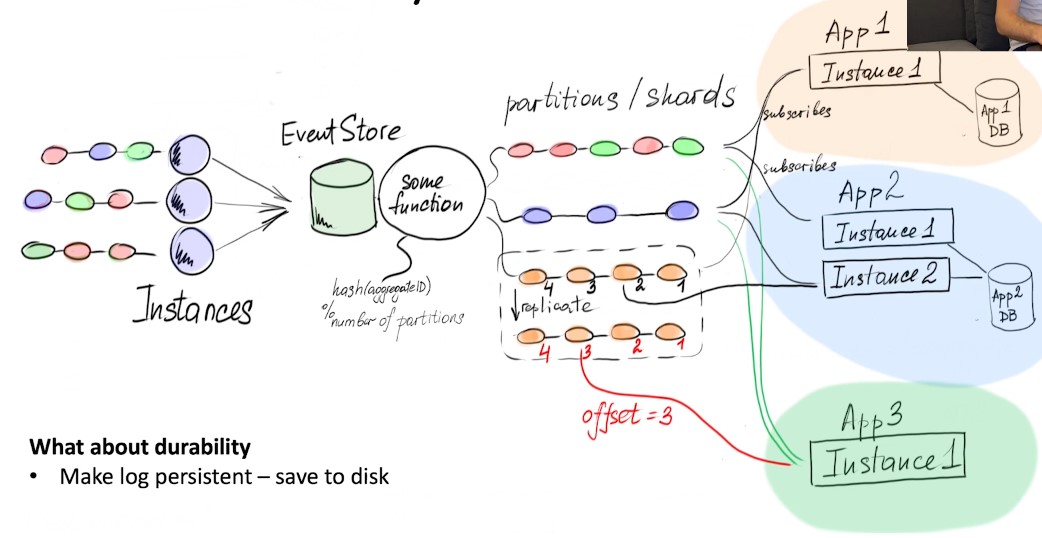 partitions / shards
EventStore
some
function
hash(aggregateID)
% number of partitions
Instances
4 3 2 1
replicate
4 3 2 1
offset = 3
subscribes
subscribes
App 1
Instance 1
App 1
DB
App2
Instance 1
Instance 2
App2
DB
App3
Instance 1
What about durability
• Make log persistent – save to disk